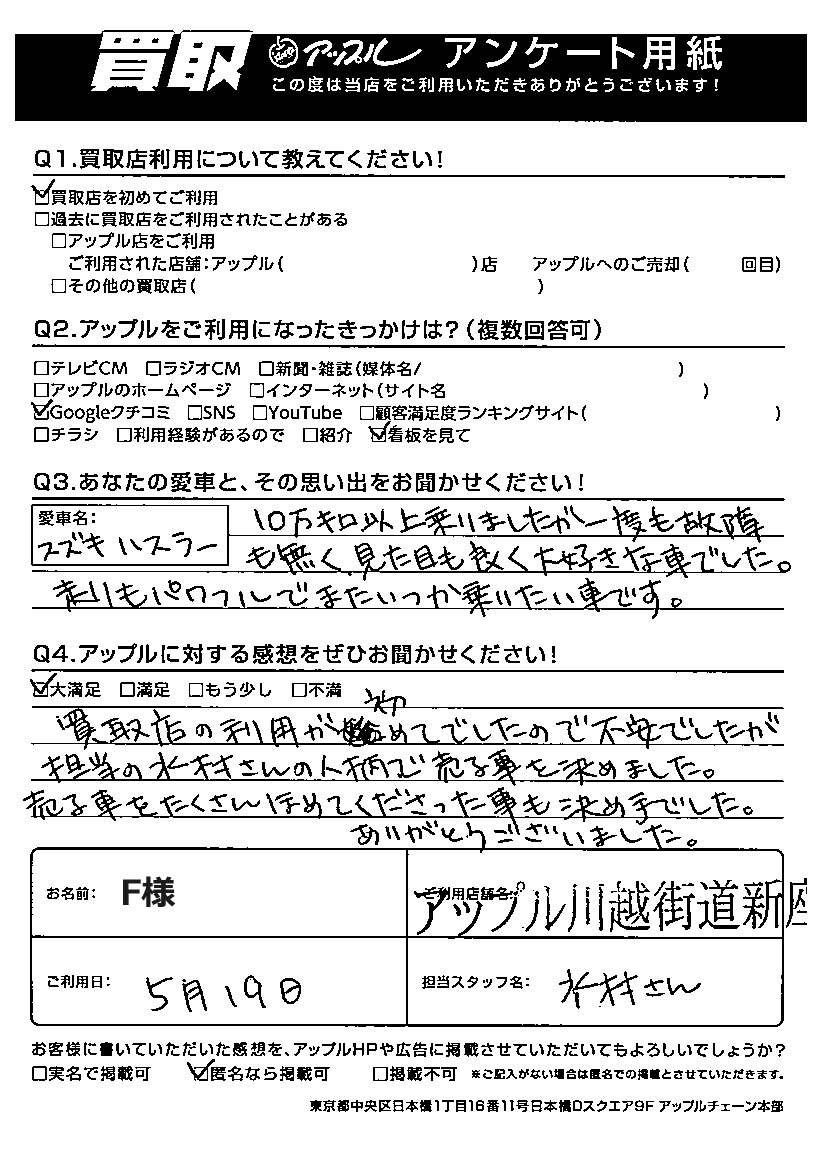 買取 アップル アンケート用紙
この度は当店をご利用いただきありがとうございます!
Q1.買取店利用について教えてください!
☑買取店を初めてご利用
□過去に買取店をご利用されたことがある
□アップル店をご利用
ご利用された店舗:アップル( )店 アップルへのご売却( 回目)
□その他の買取店( )
Q2.アップルをご利用になったきっかけは?(複数回答可)
□テレビCM □ラジオCM □新聞・雑誌(媒体名/ )
□アップルのホームページ □インターネット(サイト名 )
☑Googleクチコミ □SNS □YouTube □顧客満足度ランキングサイト( )
□チラシ □利用経験があるので □紹介 ☑看板を見て
Q3.あなたの愛車と、その思い出をお聞かせください!
愛車名:
スズキ ハスラー
10万キロ以上乗りましたが一度も故障
も無く、見た目も良く大好きな車でした。
走りもパワフルでまたいつか乗りたい車です。
Q4.アップルに対する感想をぜひお聞かせください!
☑大満足 □満足 □もう少し □不満
買取店の利用が初めてでしたので不安でしたが
担当の水村さんの人柄で売る車を決めました。
売る車をたくさんほめてくださった事も決め手でした。
ありがとうございました。
お名前: F様
ご利用店舗名:
アップル川越街道新座
ご利用日: 5月19日
担当スタッフ名: 水村さん
お客様に書いていただいた感想を、アップルHPや広告に掲載させていただいてもよろしいでしょうか?
□実名で掲載可 ☑匿名なら掲載可 □掲載不可 ※ご記入がない場合は匿名での掲載とさせていただきます。
東京都中央区日本橋1丁目16番11号日本橋Dスクエア9F アップルチェーン本部